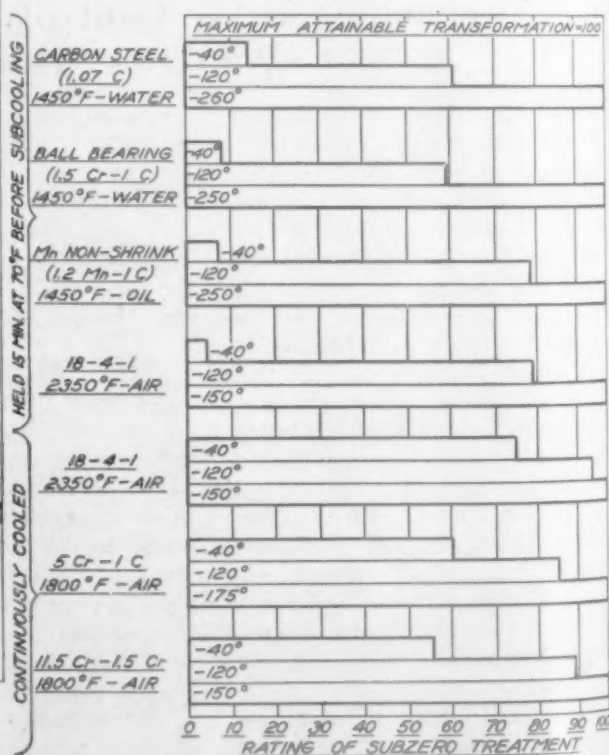 MAXIMUM ATTAINABLE TRANSFORMATION=100
HELD 15 MIN. AT 70°F BEFORE SUBCOOLING
CARBON STEEL
(1.07 C)
1450°F-WATER
-40°
-120°
-260°
BALL BEARING
(1.5 Cr-1 C)
1450°F-WATER
-40°
-120°
-250°
Mn NON-SHRINK
(1.2 Mn-1 C)
1450°F-OIL
-40°
-120°
-250°
18-4-1
2350°F-AIR
-40°
-120°
-150°
CONTINUOUSLY COOLED
18-4-1
2350°F-AIR
-40°
-120°
-150°
5 Cr-1 C
1800°F-AIR
-40°
-120°
-175°
11.5 Cr-1.5 Cr
1800°F-AIR
-40°
-120°
-150°
0 10 20 30 40 50 60 70 80 90 100
RATING OF SUBZERO TREATMENT